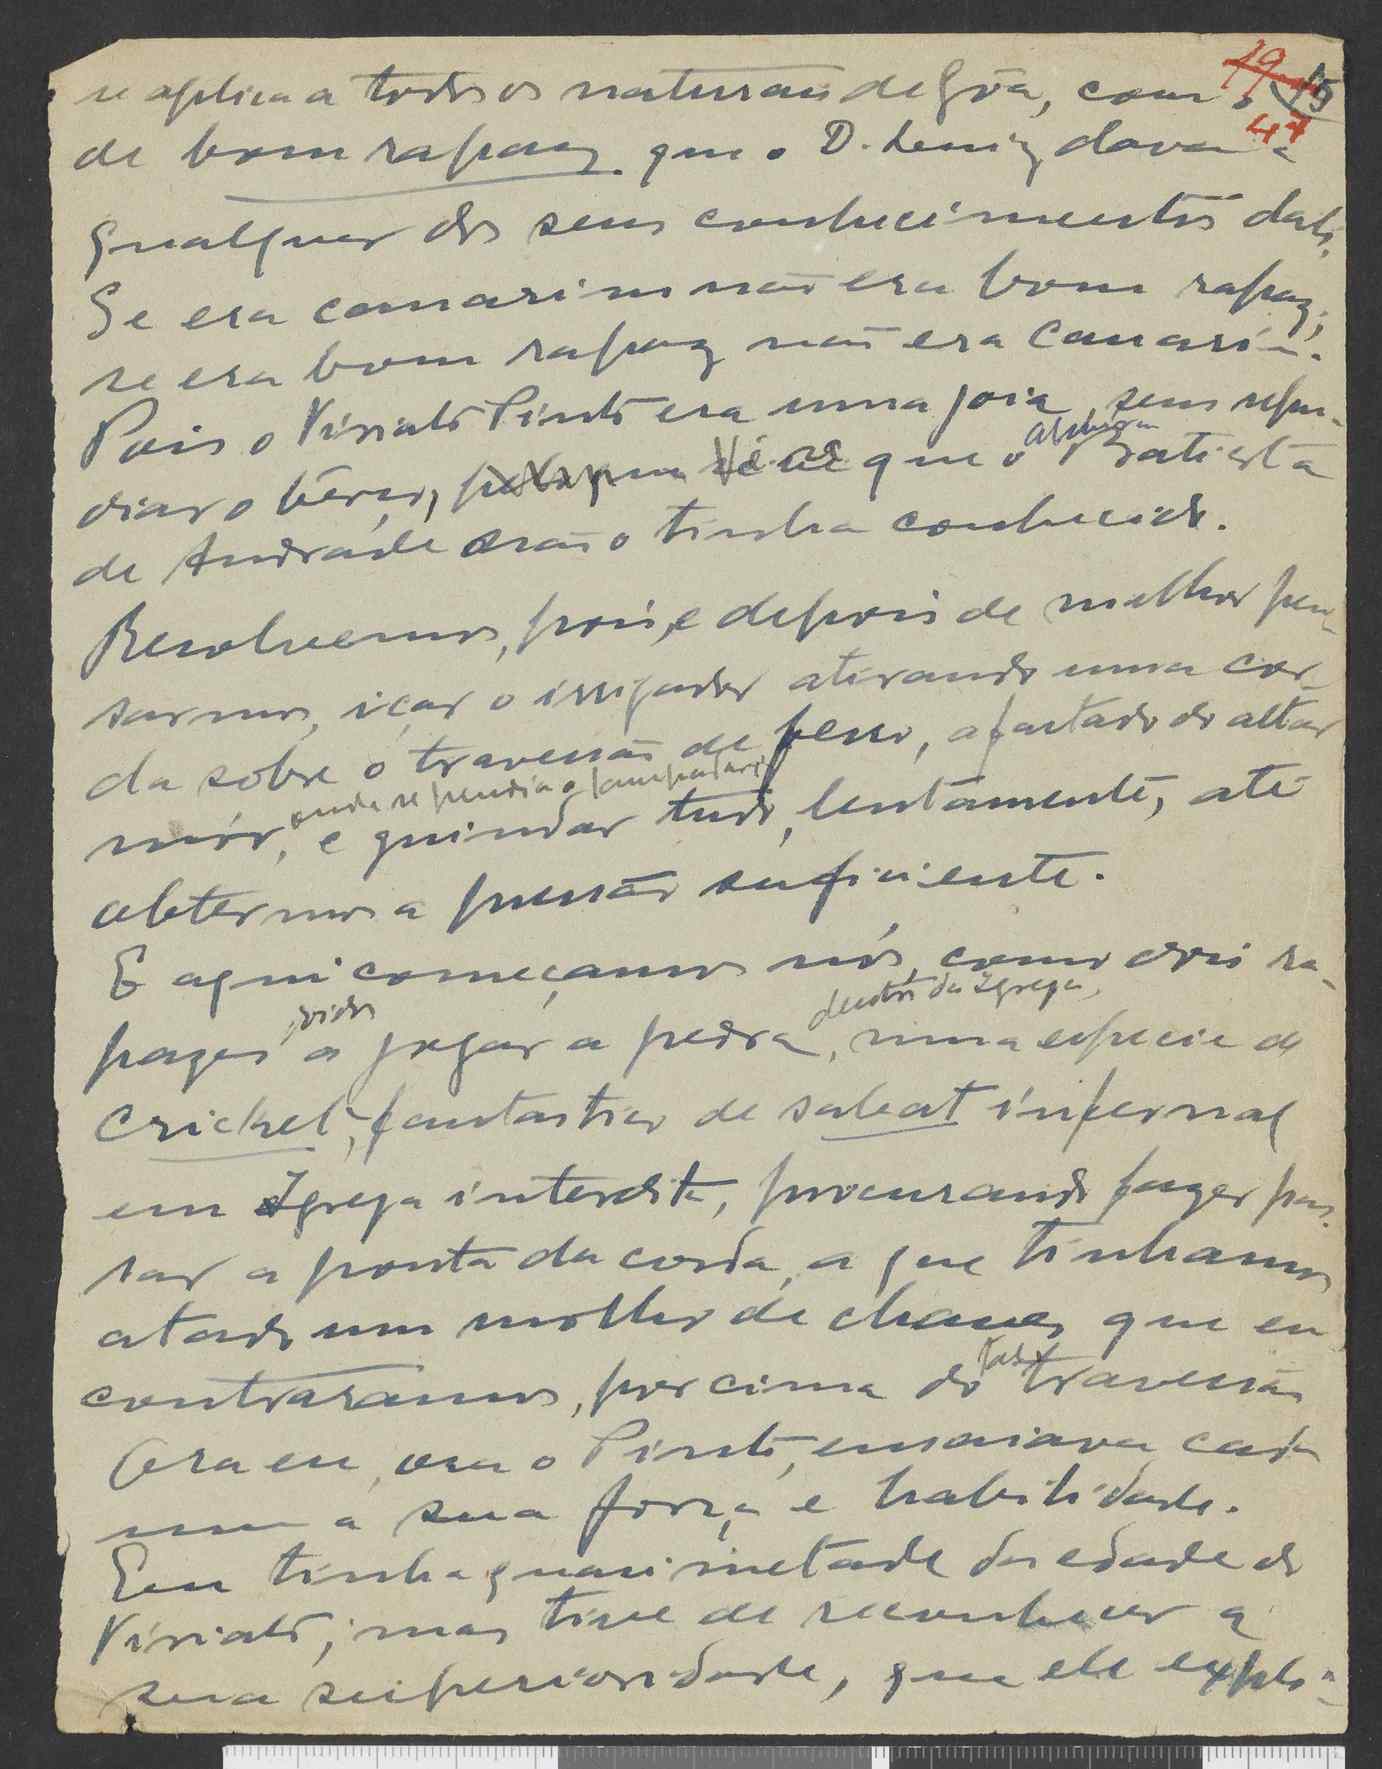 19 15
47
se aplica a todos os naturais de Gôa, com o
de bom rapaz que o D. Luiz dava a
qualquer dos seus conhecimentos dali.
Se era canarim não era bom rapaz;
se era bom rapaz não era canarim.
Pois o Viriato Pinto era uma joia, sem repu-
diar o berço, que o Batista
de Andrade não o tinha conhecido.
Resolvemos, pois, e depois de melhor pen-
sarmos, içar o irrigador atirando uma cor-
da sobre o travessão de ferro, afastado do altar
onde se pendia o lampadario
mór, e guindar tudo, lentamente, até
obtermos a pressão suficiente.
E aqui começamos nós, como dois ra-
dentro da Igreja,
pazes a jogar a pedra, numa especie de
cricket, fantastico de sabat infernal
em Igreja interdita, procurando fazer pas-
sar a ponta da corda, a que tinhamos
atado um molho de chaves que en
contraramos, por cima do tal travessão
Ora eu, ora o Pinto, ensaiava cada
um a sua força e habilidade.
Eu tinha quasi metade da edade do
Viriato; mas tive de reconhecer a
sua superioridade, que ele expli-